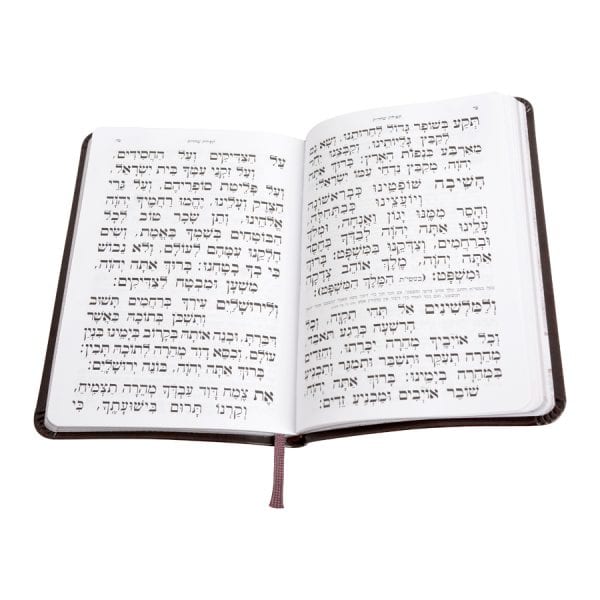 תפילת שחרית
תְּקַע בְּשׁוֹפָר גָּדוֹל לְחֵרוּתֵנוּ, וְשָׂא נֵס
לְקַבֵּץ גָּלֻיּוֹתֵינוּ, וְקַבְּצֵנוּ יַחַד
מֵאַרְבַּע כַּנְפוֹת הָאָרֶץ: בָּרוּךְ אַתָּה
יְהֹוָה, מְקַבֵּץ נִדְחֵי עַמּוֹ יִשְׂרָאֵל:
הָשִׁיבָה שׁוֹפְטֵינוּ כְּבָרִאשׁוֹנָה
וְיוֹעֲצֵינוּ כְּבַתְּחִלָּה,
וְהָסֵר מִמֶּנּוּ יָגוֹן וַאֲנָחָה, וּמְלֹךְ
עָלֵינוּ אַתָּה יְהֹוָה לְבַדְּךָ בְּחֶסֶד
וּבְרַחֲמִים, וְצַדְּקֵנוּ בַּמִּשְׁפָּט: בָּרוּךְ
אַתָּה יְהֹוָה, מֶלֶךְ אוֹהֵב צְדָקָה
וּמִשְׁפָּט: (בעשי"ת הַמֶּלֶךְ הַמִּשְׁפָּט):
וְלַמַּלְשִׁינִים אַל תְּהִי תִקְוָה, וְכָל
הָרִשְׁעָה כְּרֶגַע תֹּאבֵד
וְכָל אוֹיְבֶיךָ מְהֵרָה יִכָּרֵתוּ, וְהַזֵּדִים
מְהֵרָה תְעַקֵּר וּתְשַׁבֵּר וּתְמַגֵּר וְתַכְנִיעַ
בִּמְהֵרָה בְיָמֵינוּ: בָּרוּךְ אַתָּה יְהֹוָה,
שׁוֹבֵר אוֹיְבִים וּמַכְנִיעַ זֵדִים:
תפילת שחרית
עַל הַצַּדִּיקִים וְעַל הַחֲסִידִים,
וְעַל זִקְנֵי עַמְּךָ בֵּית יִשְׂרָאֵל,
וְעַל פְּלֵיטַת סוֹפְרֵיהֶם, וְעַל גֵּרֵי
הַצֶּדֶק וְעָלֵינוּ, יֶהֱמוּ רַחֲמֶיךָ יְהֹוָה
אֱלֹהֵינוּ, וְתֵן שָׂכָר טוֹב לְכָל
הַבּוֹטְחִים בְּשִׁמְךָ בֶּאֱמֶת, וְשִׂים
חֶלְקֵנוּ עִמָּהֶם לְעוֹלָם, וְלֹא נֵבוֹשׁ
כִּי בְךָ בָּטָחְנוּ: בָּרוּךְ אַתָּה יְהֹוָה,
מִשְׁעָן וּמִבְטָח לַצַּדִּיקִים:
וְלִירוּשָׁלַיִם עִירְךָ בְּרַחֲמִים תָּשׁוּב
וְתִשְׁכּוֹן בְּתוֹכָהּ כַּאֲשֶׁר
דִּבַּרְתָּ, וּבְנֵה אוֹתָהּ בְּקָרוֹב בְּיָמֵינוּ בִּנְיַן
עוֹלָם, וְכִסֵּא דָוִד מְהֵרָה לְתוֹכָהּ תָּכִין:
בָּרוּךְ אַתָּה יְהֹוָה, בּוֹנֵה יְרוּשָׁלָיִם:
אֶת צֶמַח דָּוִד עַבְדְּךָ מְהֵרָה תַצְמִיחַ,
וְקַרְנוֹ תָּרוּם בִּישׁוּעָתֶךָ, כִּי